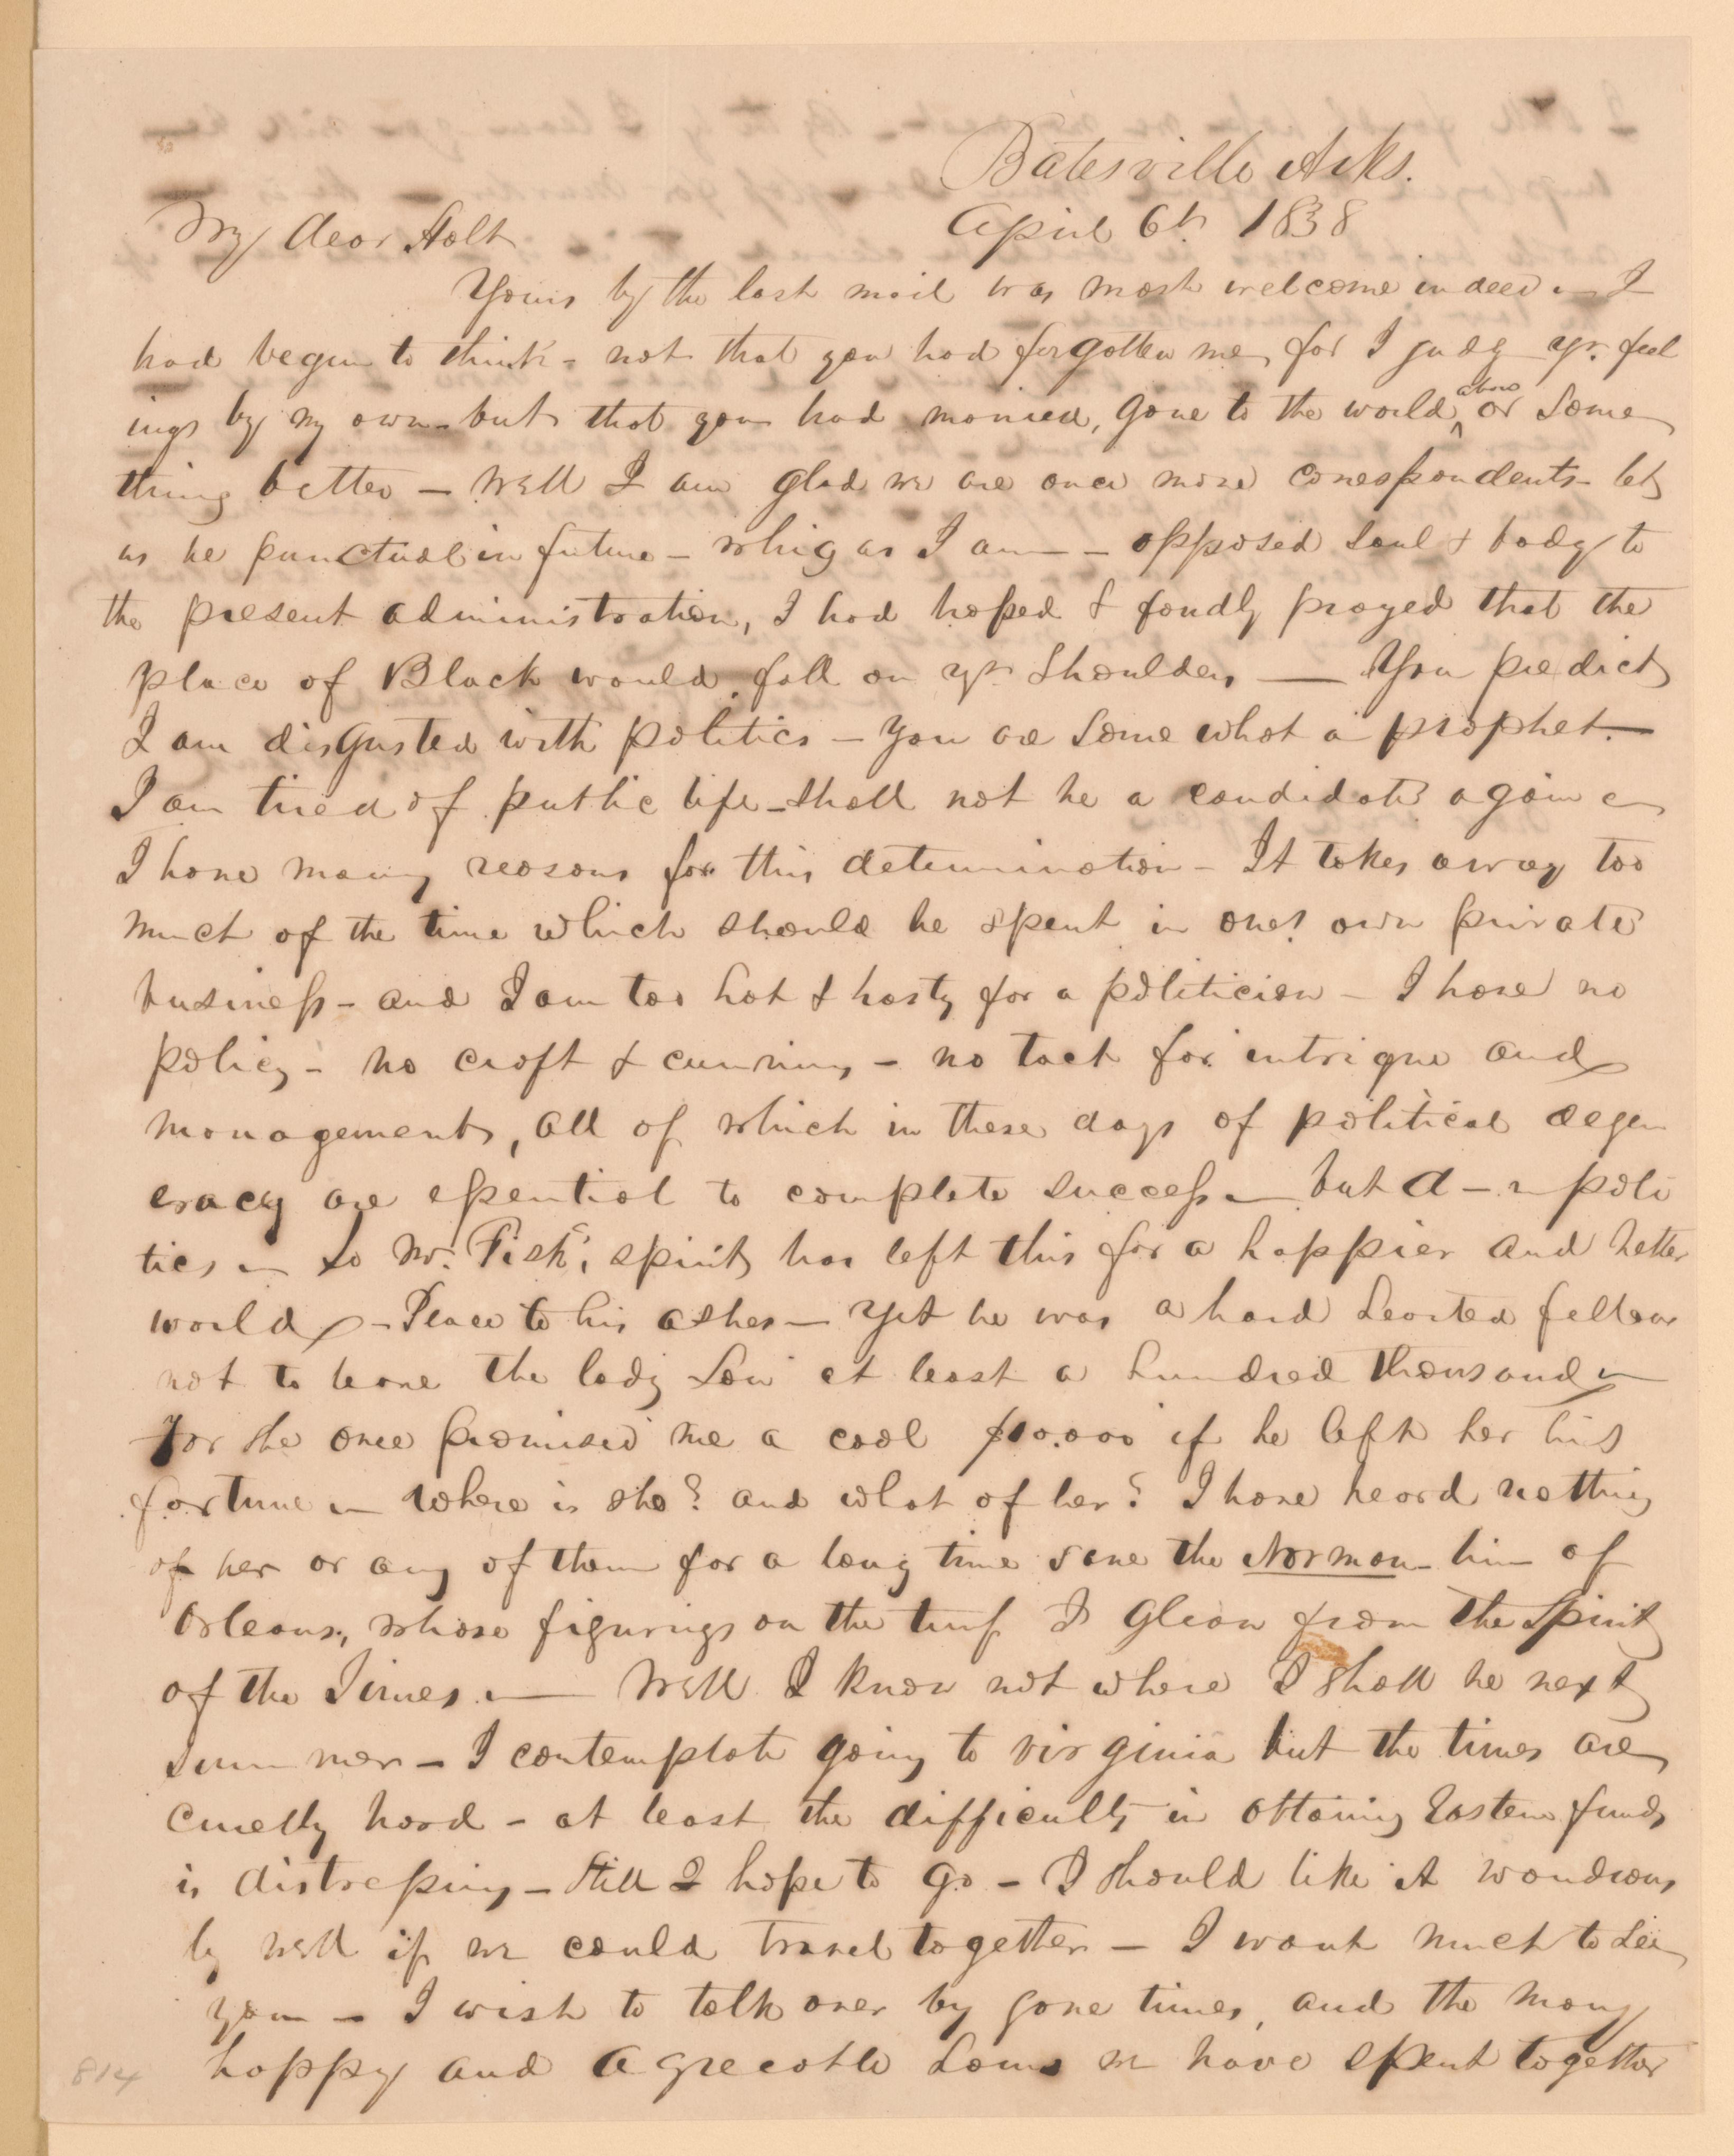 Batesville Arks.
April 6th 1838
My dear Holt
Yours by the last mail was most welcome indeed – I
had begun to think – not that you had forgotten me, for I judg yr. feel
ings by my own – but that you had married, gone to the world above or some
thing better – Well I am glad we are once more correspondents – let
us be punctual in future – whig as I am – opposed soul & body to
the present administration, I had hoped & fondly prayed that the
place of Black would fall on yr shoulders — You predict
I am disgusted with politics – you are some what a prophet. –
I am tired of public life – shall not be a candidate again –
I have many reasons for this determination – It takes away too
much of the time which should be spent in ones own private
business – and I am too hot & hasty for a politician – I have no
policy – no craft & cunning – no tact for intrigue and
management, all of which in these days of political degen
eracy are essential to complete success – but d – n poli
tics – So Mr. Fisk's spirit has left this for a happier and better
world – Peace to his ashes – Yet he was a hard hearted fellow
not to leave the lady Lou at least a hundred thousand –
for she once promised me a cool $10.000 if he left her his
fortune – Where is she? and what of her? I have heard nothing
of her or any of them for a long time save the Norman – him of
Orleans, whose figurings on the turf I glean from the Spirit
of the Times. — Well I know not where I shall be next
summer – I contemplate going to virginia but the times are
cruelly hard – at least the difficulty in obtaining Eastern funds
is distressing – Still I hope to go – I should like it wondrous
ly well if we could travel together – I want much to see
you – I wish to talk over by gone times, and the many
happy and agreeable hours we have spent together
814